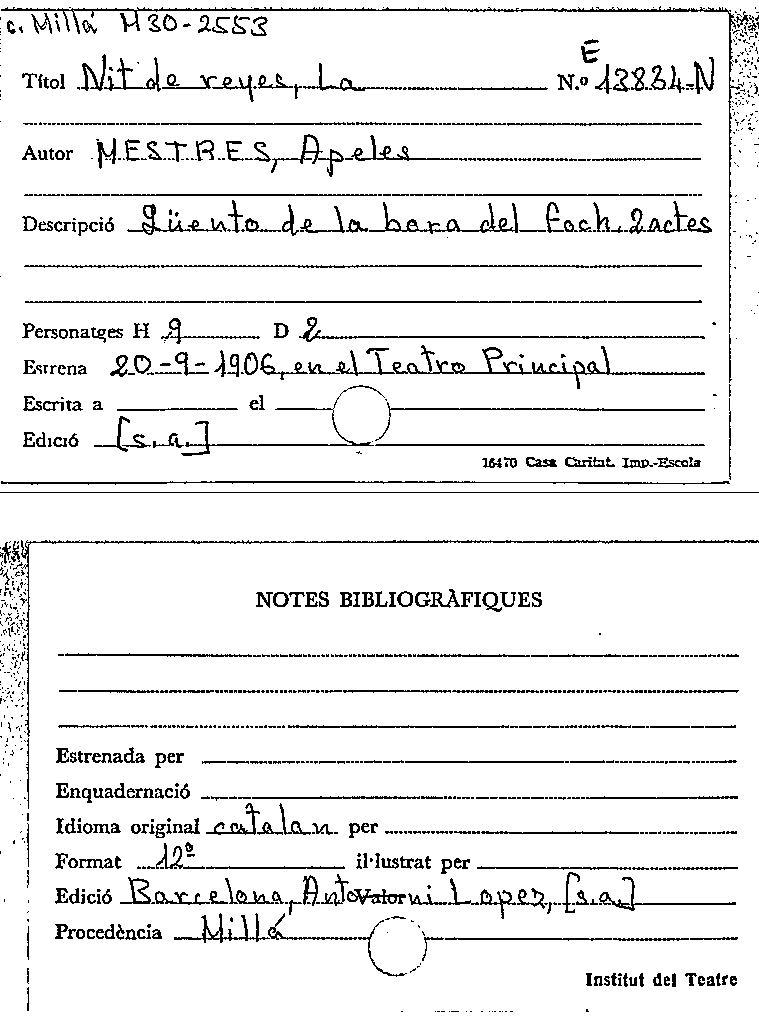 c. Millá H30-2553
Títol Nit de reyes, La N.º E 13834-N
Autor MESTRES, Apeles
Descripció qüento de la bora del foch. 2 actes
Personatges H 9 D 2
Estrena 20-9-1906, en el Teatro Principal
Escrita a el
Edició [s.a.]
16470 Casa Caritat. Imp.-Escola
NOTES BIBLIOGRÀFIQUES
Estrenada per
Enquadernació
Idioma original catalan per
Format 12º il·lustrat per
Edició Barcelona, Antoni Lopez, [s.a.]
Procedència Millá
Institut del Teatre